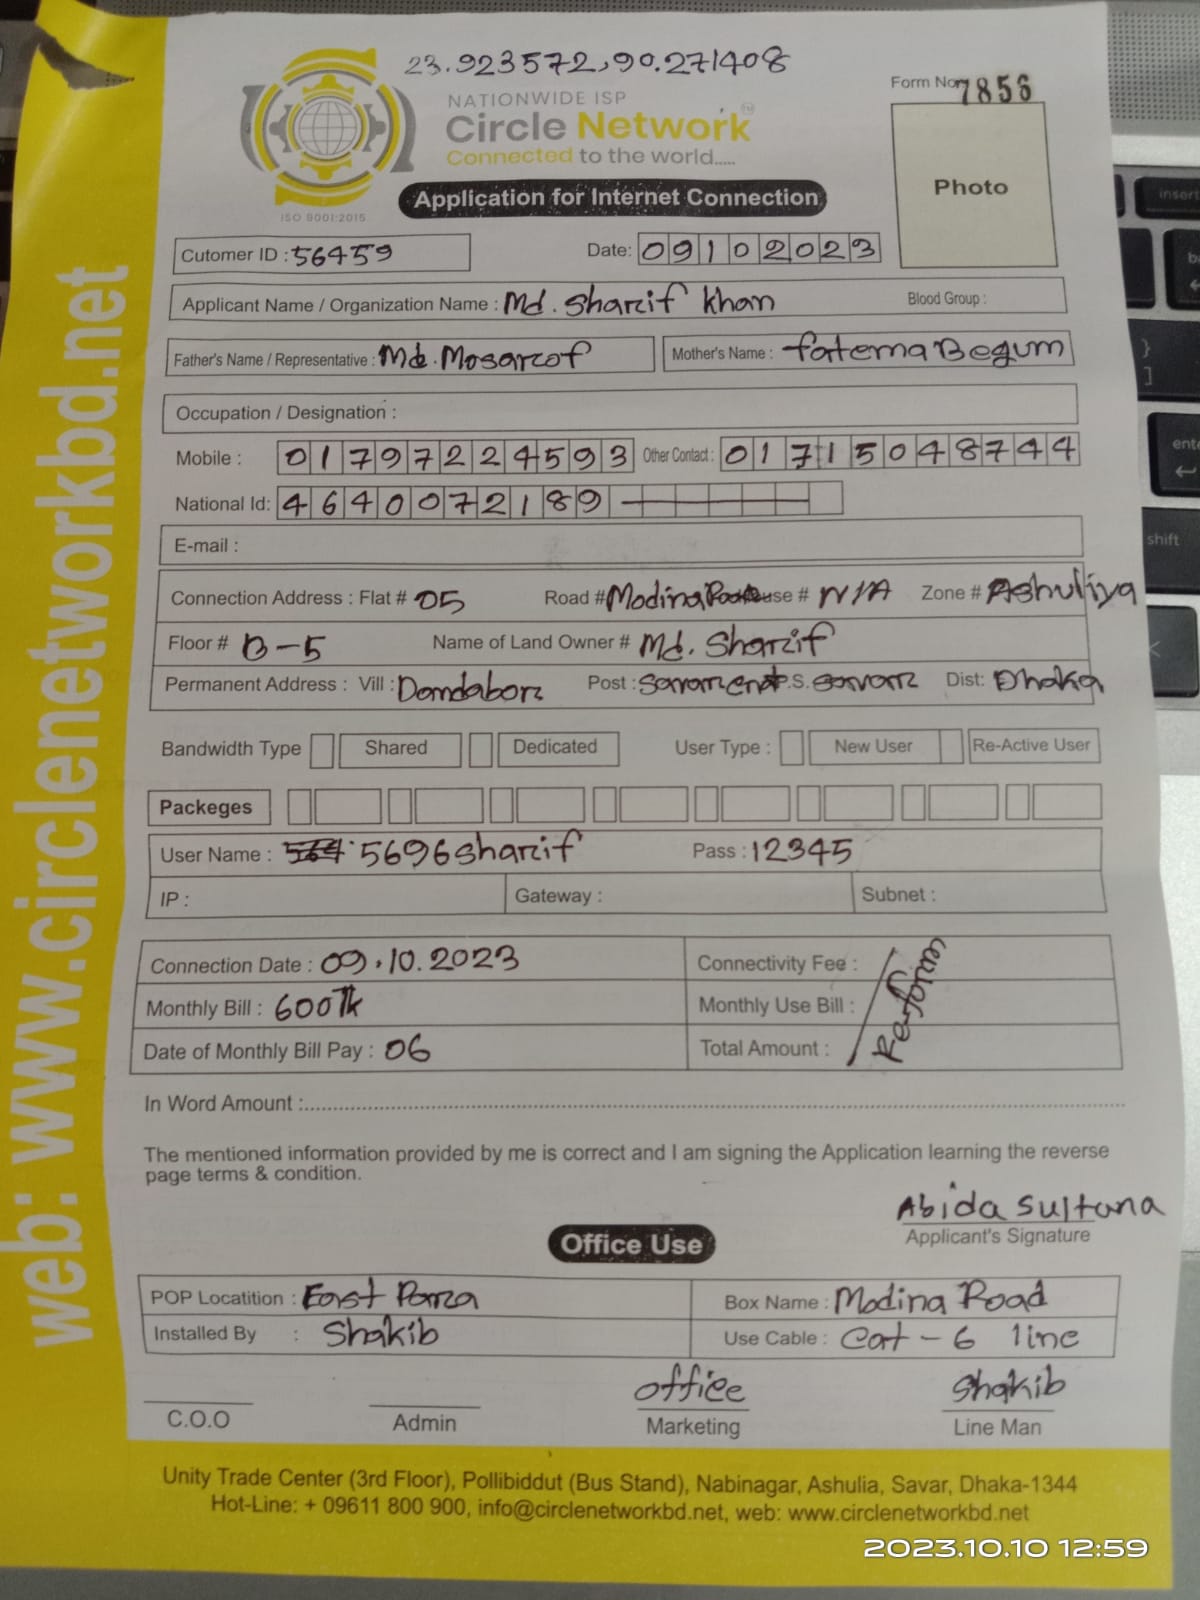 23.923572,90.271408
NATIONWIDE ISP
Form No. 7856
Circle Network TM
Connected to the world.....
Photo
ISO 9001:2015
Application for Internet Connection
Cutomer ID : 56459 Date: 09102023
Applicant Name / Organization Name : Md. Sharif Khan Blood Group :
Father's Name / Representative : Md. Mosarof Mother's Name : Fatema Begum
Occupation / Designation :
Mobile : 01797224593 Other Contact : 01715048744
National Id: 4640072189
E-mail :
Connection Address : Flat # 05 Road # Modina Road House # N/A Zone # Ashuliya
Floor # B-5 Name of Land Owner # Md. Sharif
Permanent Address : Vill : Dendabor Post : P.S. Savar Dist: Dhaka
Bandwidth Type Shared Dedicated User Type : New User Re-Active User
Packeges
User Name : 5696sharif Pass : 12345
IP : Gateway : Subnet :
Connection Date : 09.10.2023 Connectivity Fee :
Monthly Bill : 600Tk Monthly Use Bill :
Date of Monthly Bill Pay : 06 Total Amount :
Re-form
In Word Amount :
The mentioned information provided by me is correct and I am signing the Application learning the reverse
page terms & condition.
Abida Sultana
Applicant's Signature
Office Use
POP Locatition : East Para Box Name : Modina Road
Installed By : Shakib Use Cable : Cat-6 line
office Shakib
C.O.O Admin Marketing Line Man
Unity Trade Center (3rd Floor), Pollibiddut (Bus Stand), Nabinagar, Ashulia, Savar, Dhaka-1344
Hot-Line: + 09611 800 900, info@circlenetworkbd.net, web: www.circlenetworkbd.net
web: www.circlenetworkbd.net
2023.10.10 12:59